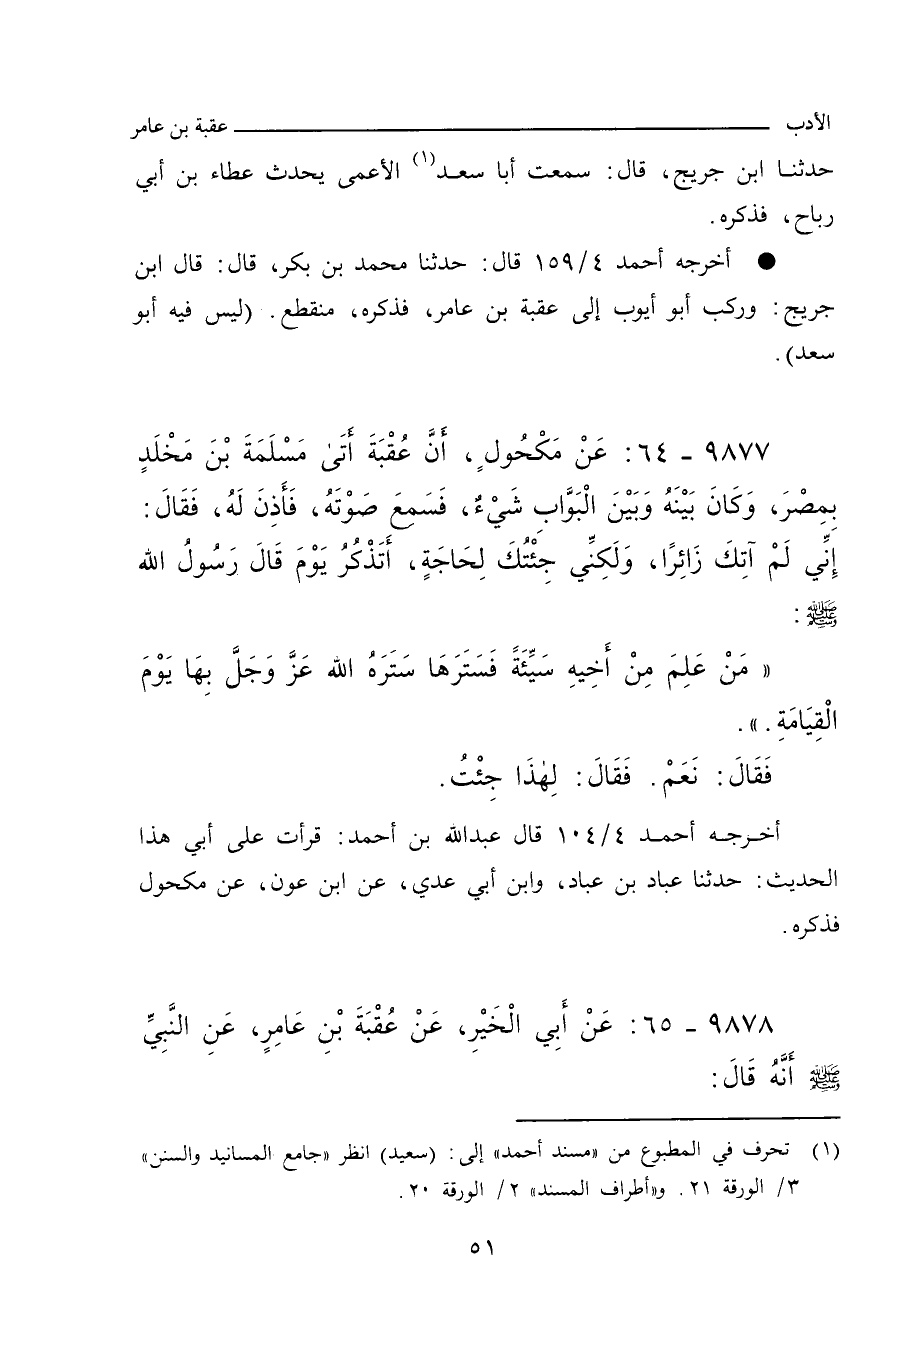 الأدب ـــــــــــــــــــــ عقبة بن عامر
حدثنا ابن جريج، قال: سمعت أبا سعد(١) الأعمى يحدث عطاء بن أبي
رباح، فذكره.
● أخرجه أحمد ١٥٩/٤ قال: حدثنا محمد بن بكر، قال: قال ابن
جريج: وركب أبو أيوب إلى عقبة بن عامر، فذكره، منقطع. (ليس فيه أبو
سعد).
٩٨٧٧ ـ ٦٤: عَنْ مَكْحُولٍ، أَنَّ عُقْبَةَ أَتَىٰ مَسْلَمَةَ بْنَ مَخْلَدٍ
بِمِصْرَ، وَكَانَ بَيْنَهُ وَبَيْنَ الْبَوَّابِ شَيْءٌ، فَسَمِعَ صَوْتَهُ، فَأَذِنَ لَهُ، فَقَالَ:
إِنِّي لَمْ آتِكَ زَائِرًا، وَلَكِنِّي جِئْتُكَ لِحَاجَةٍ، أَتَذْكُرُ يَوْمَ قَالَ رَسُولُ الله
ﷺ:
« مَنْ عَلِمَ مِنْ أَخِيهِ سَيِّئَةً فَسَتَرَهَا سَتَرَهُ الله عَزَّ وَجَلَّ بِهَا يَوْمَ
الْقِيَامَةِ.».
فَقَالَ: نَعَمْ. فَقَالَ: لِهٰذَا جِئْتُ.
أخرجه أحمد ١٠٤/٤ قال عبدالله بن أحمد: قرأت على أبي هذا
الحديث: حدثنا عباد بن عباد، وابن أبي عدي، عن ابن عون، عن مكحول
فذكره.
٩٨٧٨ ـ ٦٥: عَنْ أَبِي الْخَيْرِ، عَنْ عُقْبَةَ بْنِ عَامِرٍ، عَنِ النَّبِيِّ
ﷺ أَنَّهُ قَالَ:
(١) تحرف في المطبوع من «مسند أحمد» إلى: (سعيد) انظر «جامع المسانيد والسنن»
٣/ الورقة ٢١. و«أطراف المسند» ٢/ الورقة ٢٠.
٥١